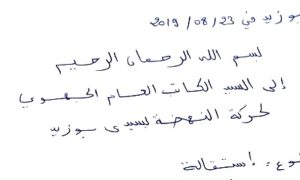 بوزيد في 23 / 08 / 2019
بسم الله الرحمان الرحيم
إلى السيد الكاتب العام الجهوي
لحركة النهضة بسيدي بوزيد
استقالة